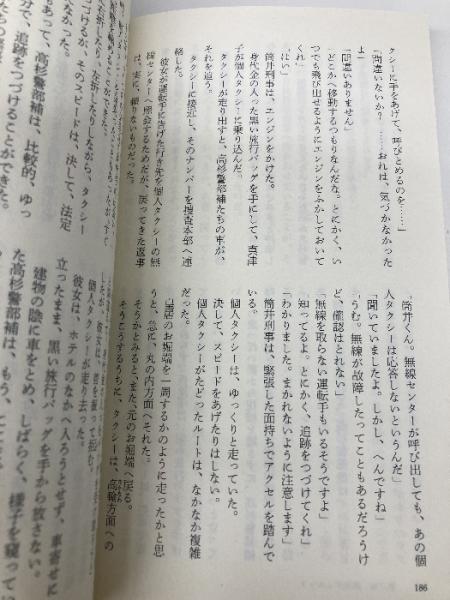 クシーに手をあげて、呼びとめるのを……」
「間違いないか？　……おれは、気づかなかった
よ」
「間違いありません」
「どこかへ移動するつもりなんだな。とにかく、い
つでも飛び出せるようにエンジンをふかしておいて
くれ」
「はい」
筒井刑事は、エンジンをかけた。
身代金の入った黒い旅行バッグを手にして、真津
子が個人タクシーに乗り込んだ。
タクシーが走り出すと、高杉警部補たちの車が、
それを追う。
タクシーに接近し、そのナンバーを捜査本部へ連
絡した。
彼女が運転手に告げた行き先を個人タクシーの無
線センターへ照会するためだが、戻ってきた返事
は、実に、頼りないものだった。
「筒井くん。無線センターが呼び出しても、あの個
人タクシーは応答しないというんだ」
「聞いていましたよ。しかし、へんですね」
「うむ。無線が故障したってこともあるだろうけ
ど、確認はとれない」
「無線を取らない運転手もいるそうですよ」
「知ってるよ。とにかく、追跡をつづけてくれ」
「わかりました。まかれないように注意します」
筒井刑事は、緊張した面持ちでアクセルを踏んで
いる。
個人タクシーは、ゆっくりと走っていた。
決して、スピードをあげたりはしない。
個人タクシーがたどったルートは、なかなか複雑
だった。
皇居のお堀端を一周するかのように走ったかと思
うと、急に、丸の内方面へそれた。
そうかとみると、また、元のお堀端へ戻る。
そうこうするうちに、タクシーは、高輪方面への
186
左折したりしながら、タクシー
つづけるが、そのスピードは、決して、法定
なかった。
もあって、高杉警部補は、比較的、ゆっ
分で、追跡をつづけることができた。
個人タクシーが走り去った。
彼女は、ホテルのなかへ入ろうとせず、車寄せに
立ったまま、黒い旅行バッグを手から放さない。
建物の陰に車をとめ、しばらく、様子を窺ってい
た高杉警部補は、もう、